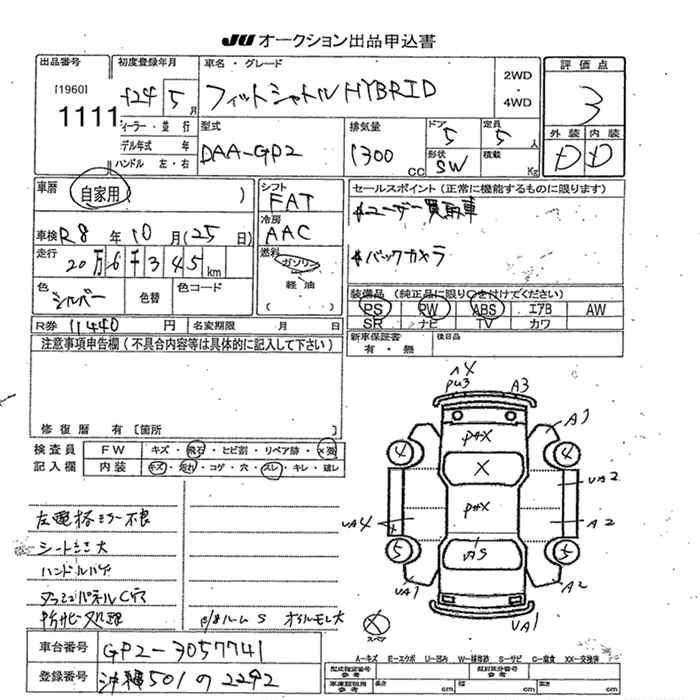 JU オークション出品申込書
出品番号 初度登録年月 車名・グレード 評価点
[1960] 1111 H24 5月 フィットシャトル HYBRID 2WD・4WD 3
ディーラー・並行 型式 排気量 ドア 5 定員 5人 外装 内装
モデル年式 年 DAA-GP2 1300CC 形状 SW 積載 Kg D D
ハンドル 左・右
車歴 自家用 ( ) シフト FAT セールスポイント(正常に機能するものに限ります)
冷房 AAC #ユーザー買取車
車検 R8年10月(25日) #バックカメラ
走行 20万6千345km 燃料 ガソリン 軽油 ( )
色 シルバー 色替 色コード 装備品(純正品に限り○を付けてください)
PS PW ABS エアB AW
SR ナビ TV カワ
R券 11440円 名変期限 月 日 新車保証書 有・無 後日品
注意事項申告欄(不具合内容等は具体的に記入して下さい)
修復歴 有 [箇所
検査員 FW キズ・飛石・ヒビ割・リペア跡・X要
記入欄 内装 キズ・汚れ・コゲ・穴・スレ・キレ・破レ
左電格ミラー不良
シート
ハンドル
ダッシュパネル
ルームS オイルモレ大
車台番号 GP2-3057741
登録番号 沖縄501の2292
A4
PU3 A3
P#X A1
4 4
X
UA2
P#X
UA4 A2
5 5
UA1 A2
UA1
X スペア
A-キズ E-エクボ U-凹み W-補修跡 S-サビ C-腐食 XX-交換済
型式指定番号 参考 類別区分番号 参考
車庫証明用 参考 長さ cm 幅 cm 高さ cm